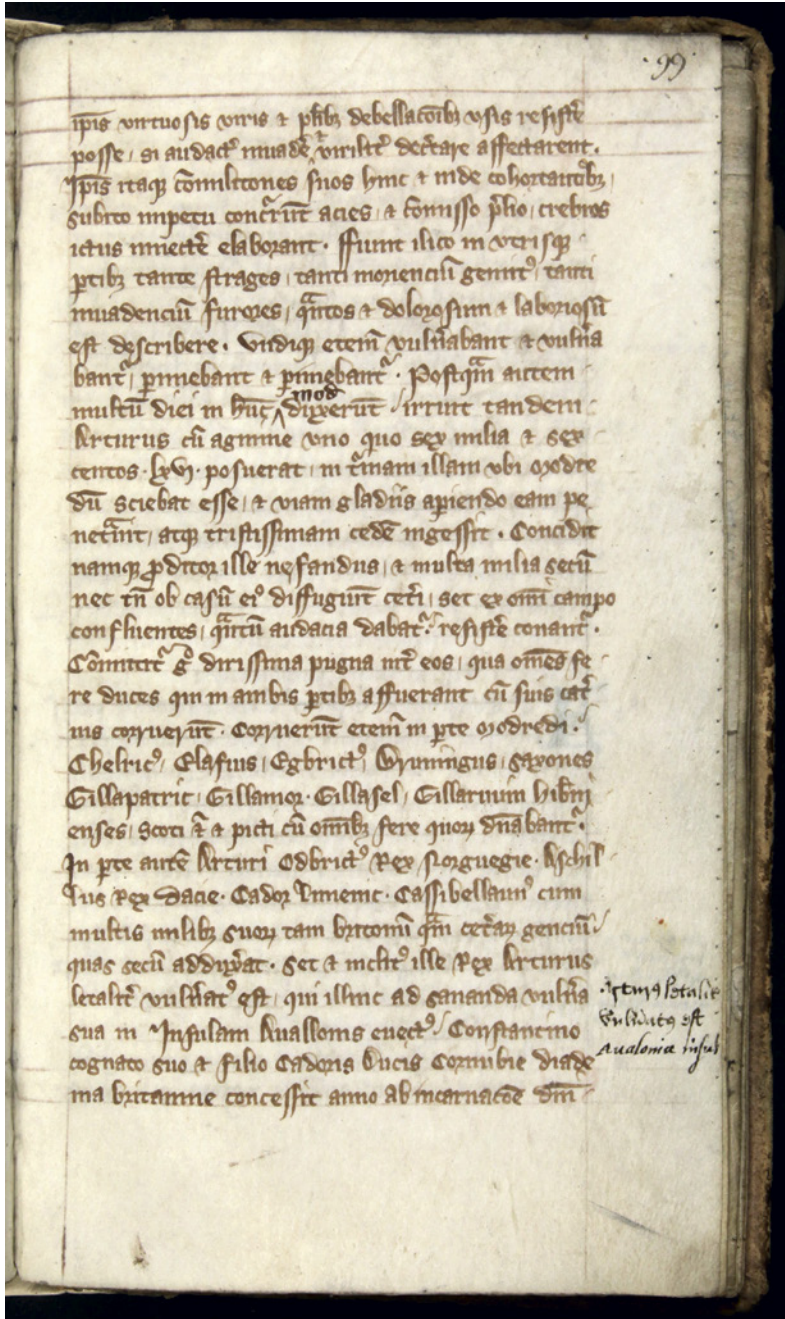 ·99·
ip̄is virtuosis viris ⁊ pl̄ibꝫ debellacōibꝫ vsis resist̄e
posse / si audact᷒ inuade᷑ ⁊ virilit᷒ decertare affectarent.
Ip̄is itaqꝫ co̅militones suos hinc ⁊ inde cohortantibꝫ /
subito impetu concr̄ūt acies / ⁊ co̅misso p̄lio / crebros
ictus innect̄e elaborant · ffiunt ilico in vtrisqꝫ
ꝑtibꝫ tante strages / tanti moriencū gemitꝰ / tanti
inuadenciū furores / qᷓntos ⁊ dolorosum ⁊ laboriosū
est describere · vndiqꝫ eteni̅ vuln̄abant ⁊ vuln̄a
bant᷑ / ꝑimebant ⁊ ꝑimebant᷑ · Postqᷓm autem
multū diei in hūc ‸ mod̄ duxerūt / irruit tandem
Arturus cū agmine vno quo sex milia ⁊ sex
centos · lxvj · posuerat / in t᷒mam illam vbi modre
dū sciebat esse / ⁊ viam gladiis aꝑiendo eam pe
netᷓuit / atqꝫ tristissimam cedē ingessit · Concidit
namqꝫ ꝓditor ille nefandus / ⁊ multa milia secū
nec tn̄ ob casū eiꝰ diffugiūt cet̄i / set ex om̄i campo
confluentes / qᷓntū audacia dabat᷑ / resist̄e conant᷑ ·
Co̅mittit᷑ gͦ dirissima pugna int̄ eos / qua om̄es fe
re duces qui in ambis ꝑtibꝫ affuerant cū suis cat̄
uis corruerūt · Corruerūt eteni̅ in ꝑte modredi /
Chelricꝰ / Elafius / Egbrictꝰ / Bruningus / saxones
Gillapatric / Gillamor · Gillasel / Gillaruum hib̄ni
enses / scoti ⁊ ⁊ picti cū om̄ibꝫ fere quoꝝ dn̄abant᷑ ·
In ꝑte autē Arturi Odbrictꝰ Rex Norguegie · Aschil
lus Rex Dacie · Cador limenic · Cassibellaunꝰ cum
multis milibꝫ suoꝝ tam britonū qᷓm cet̄aꝝ genciū /
quas secū addux̄at · Set ⁊ inclitꝰ ille Rex Arturus
letalit̄ vuln̄atꝰ est / qui illinc ad sananda vuln̄a
sua in Insulam Auallonis euectꝰ / Constantino
cognato suo ⁊ filio Cadoris Ducis Cornubie diade
ma britannie concessit anno ab incarnacōe dn̄i
Arturꝰ letalit̄
vuln̄atꝰ est
Aualonia insul